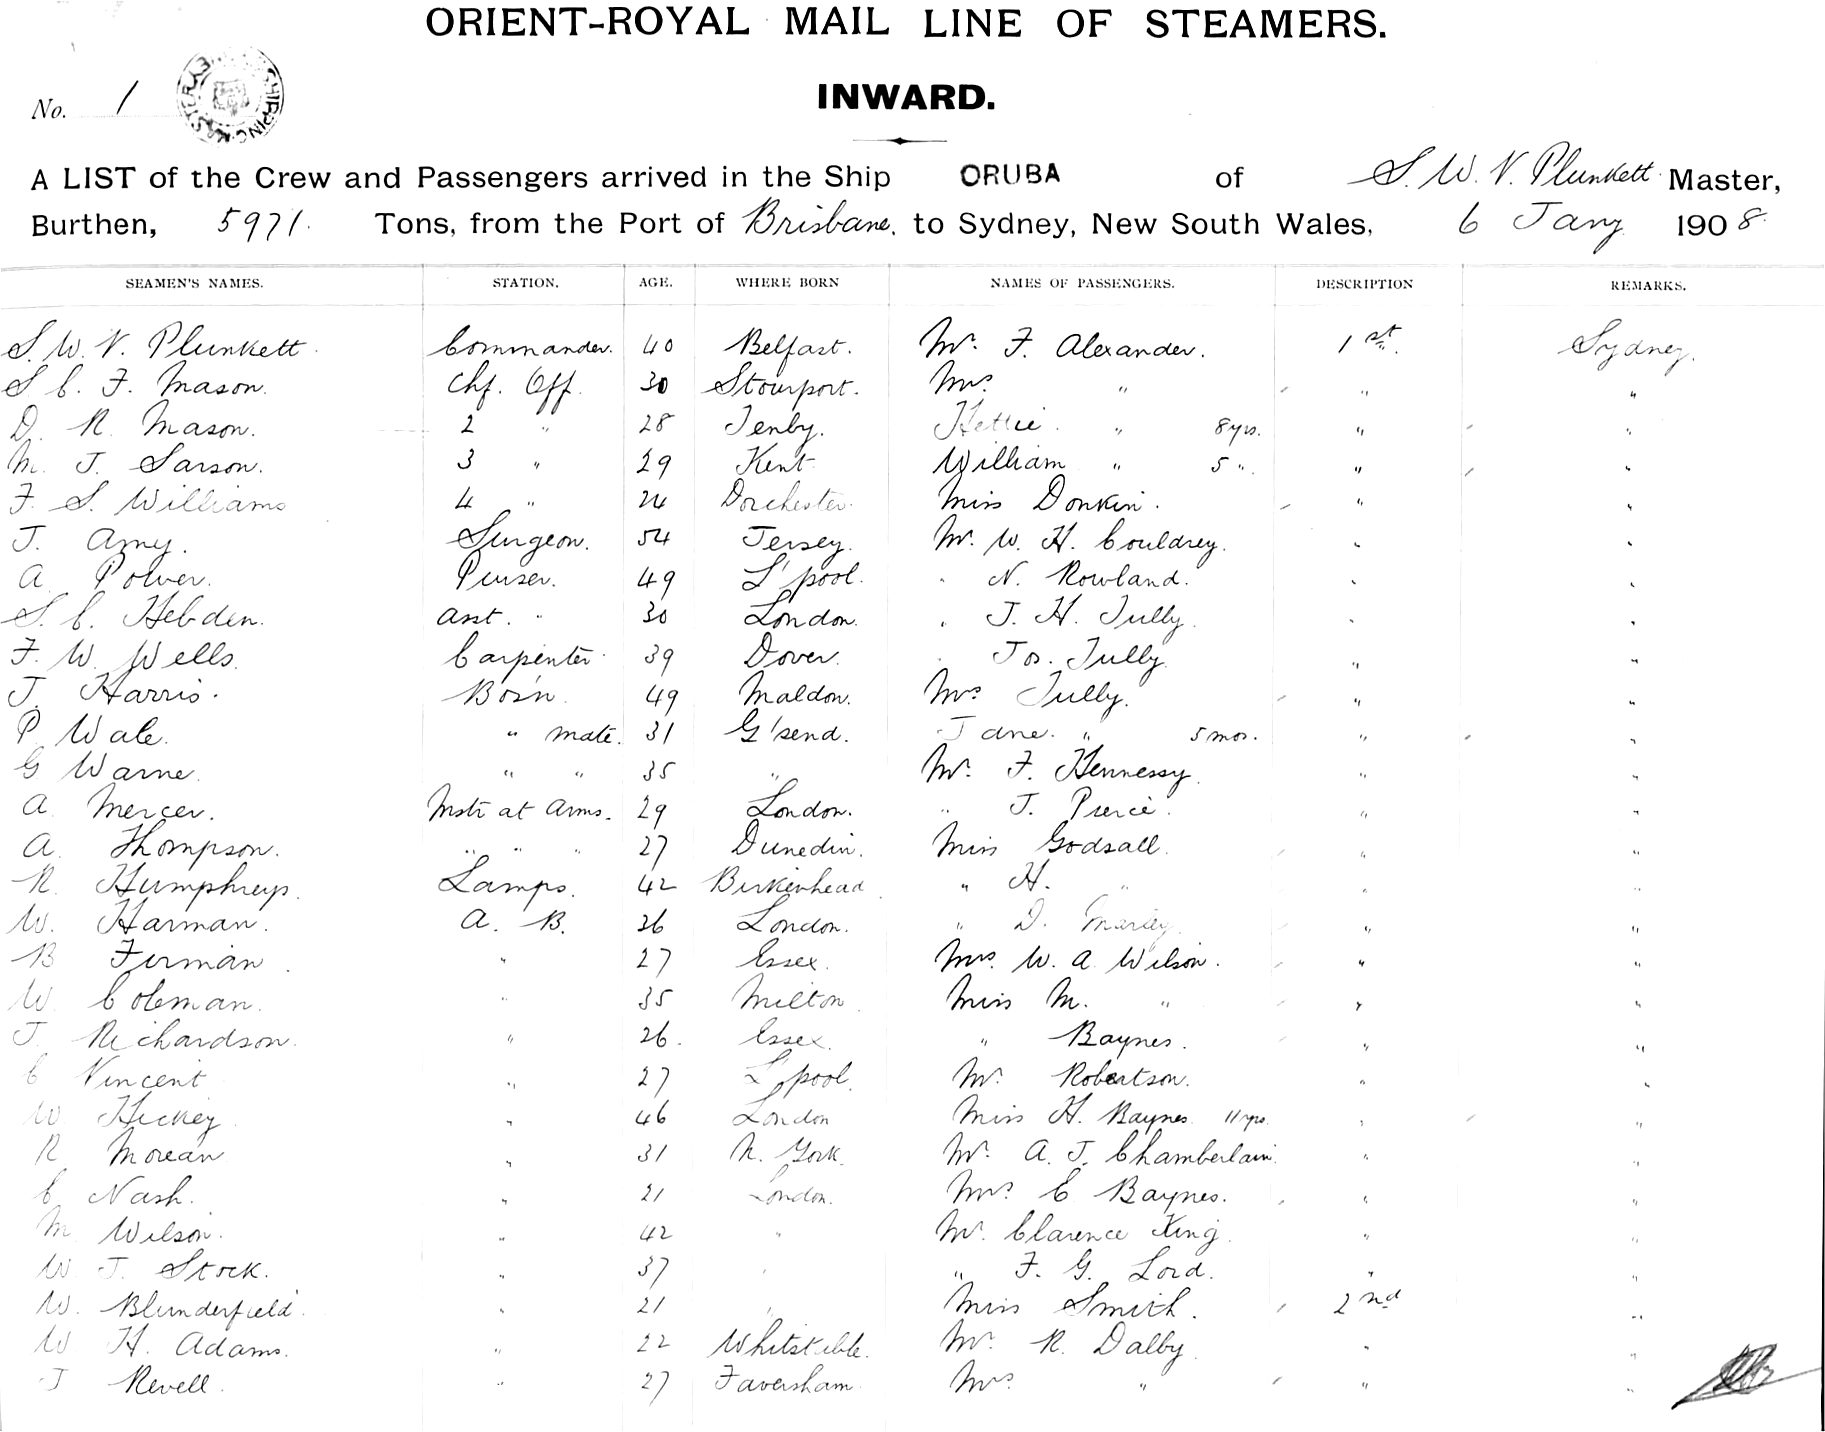 ORIENT-ROYAL MAIL LINE OF STEAMERS.
INWARD.
No. 1
A LIST of the Crew and Passengers arrived in the Ship ORUBA of S. W. V. Plunkett Master,
Burthen, 5971. Tons, from the Port of Brisbane, to Sydney, New South Wales, 6 Jany 1908
SEAMEN'S NAMES. STATION. AGE. WHERE BORN NAMES OF PASSENGERS. DESCRIPTION REMARKS.
S. W. V. Plunkett Commander. 40 Belfast. Mr. F. Alexander. 1st. Sydney.
S C. F. Mason. Chf. Off. 30 Stourport. Mrs " " "
D. R. Mason. 2 " 28 Tenby. Hettie. " 8yrs. " "
M. J. Sarson. 3 " 29 Kent William " 5 " " "
F. S. Williams 4 " 24 Dorchester. Miss Donkin. " "
J. Amy. Surgeon. 54 Jersey. Mr. W. H. Couldrey. " "
A Polver. Purser. 49 L'pool. " N. Rowland. " "
S. C. Hebden. Asst. " 30 London. " J. H. Tully. " "
F. W. Wells. Carpenter 39 Dover. " Jos. Tully. " "
J. Harris. Bos'n. 49 Maldon. Mrs Tully. " "
P Wale. " Mate. 31 G'send. Jane. " 5 mos. " "
G Warne. " " 35 " Mr. F. Hennessy " "
A. Mercer. Mstr at Arms. 29 London. " J. Pierce. " "
A. Thompson. " " " 27 Dunedin. Miss Godsall. " "
R. Humphreys. Lamps. 42 Birkenhead " H. " " "
W. Harman. A. B. 36 London. " D. " "
B Firman. " 27 Essex. Mrs. W. A. Wilson. " "
W Coleman. " 35 Milton Miss M. " " "
J. Richardson. " 26. Essex. " Baynes. " "
C Vincent " 27 L'pool. Mr. Robertson. " "
W Hickey " 46 London Miss H. Baynes. 11yrs. " "
R Morean " 31 N. York. Mr. A. J. Chamberlain. " "
C. Nash. " 21 London. Mrs C Baynes. " "
M Wilson. " 42 " Mr. Clarence King. " "
W. J. Stock. " 37 " " F. G. Lord. " "
W. Blunderfield " 21 " Miss Smith. 2nd "
W H. Adams. " 22 Whitstable. Mr. R. Dalby. " "
J Revell. " 27 Faversham. Mrs " " "